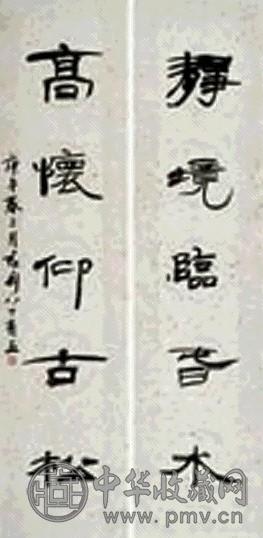 靜境臨木
高懷仰古松
庚午春月
中华收藏网
www.pmv.cn